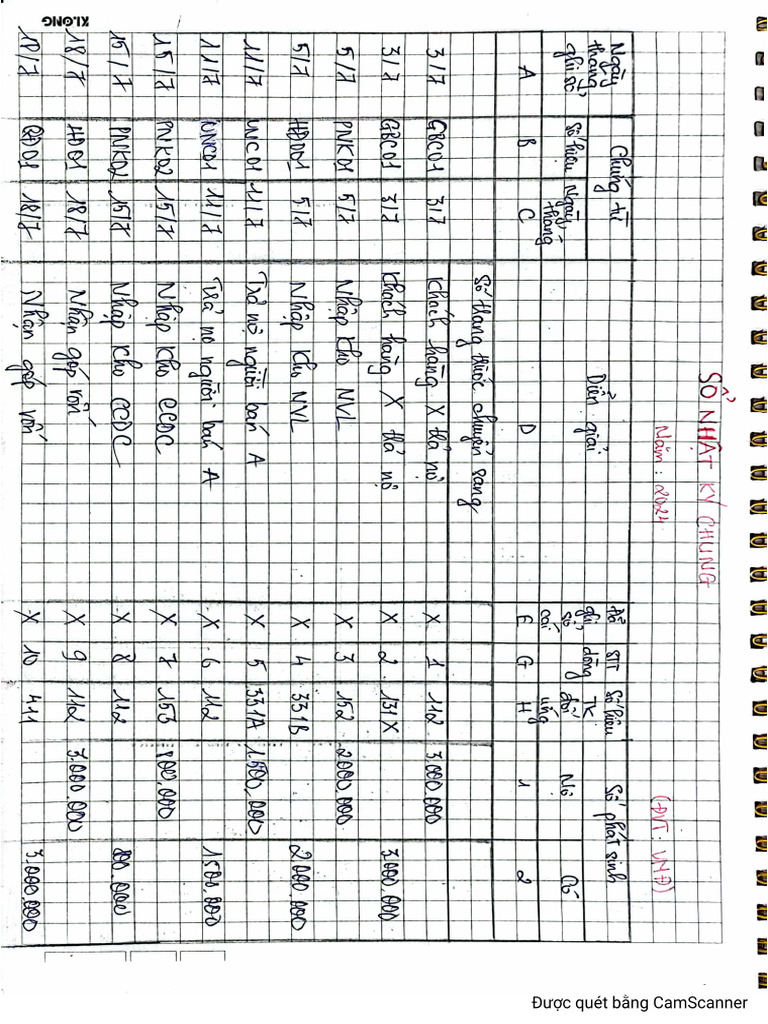 SỔ NHẬT KÝ CHUNG
Năm: 2024
(ĐVT: VNĐ)
Ngày tháng ghi sổ | Chứng từ | Diễn giải | Đã ghi sổ cái | STT dòng | Số hiệu TK đối ứng | Số phát sinh
Số hiệu | Ngày tháng | Nợ | Có
A | B | C | D | E | G | H | 1 | 2
Số tháng trước chuyển sang
3/7 | GBC01 | 3/7 | Khách hàng X trả nợ | X | 1 | 112 | 3.000.000
3/7 | GBC01 | 3/7 | Khách hàng X trả nợ | X | 2 | 131X | 3.000.000
5/7 | PNK01 | 5/7 | Nhập kho NVL | X | 3 | 152 | 2000.000
5/7 | HĐ001 | 5/7 | Nhập kho NVL | X | 4 | 331B | 2000.000
11/7 | UNC01 | 11/7 | Trả nợ người bán A | X | 5 | 331A | 1.500,000
11/7 | UNC01 | 11/7 | Trả nợ người bán A | X | 6 | 112 | 1500,000
15/7 | PNK02 | 15/7 | Nhập kho CCDC | X | 7 | 153 | 800,000
15/7 | PNK02 | 15/7 | Nhập kho CCDC | X | 8 | 112 | 800.000
18/7 | HĐ01 | 18/7 | Nhận góp vốn | X | 9 | 112 | 3.000.000
18/7 | 18/7 | Nhận góp vốn | X | 10 | 411 | 3.000.000
KLONG
Được quét bằng CamScanner